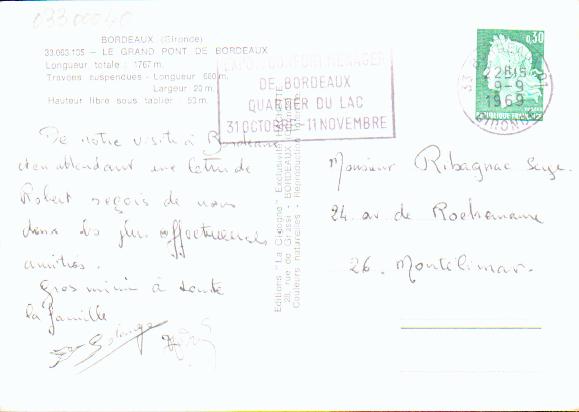 03300040
BORDEAUX (Gironde)
33.063.105 - LE GRAND PONT DE BORDEAUX
Longueur totale : 1767 m.
Travons suspendues - Longueur 680 m.
Largeur 20 m.
Hauteur libre sous tablier 53 m.
MENAGER
DE BORDEAUX
QUARTIER DU LAC
31 OCTOBRE - 11 NOVEMBRE
0,30
POSTES
REPUBLIQUE FRANCAISE
33 BORDEAUX
22H15
9-9
1969
GIRONDE
De notre visite à Bordeaux
et en attendant une lettre de
Robert reçois de nous
deux les plus affectueuses
amitiés.
Gros mimi à toute
la famille
Solange
Editions "La Cigogne" Exclusivité HACHETTE
28, rue de Grassi - BORDEAUX
Couleurs naturelles - Reproduction interdite
Monsieur Ribagnac Serge
24 av de Rochemaure
26. Montélimar.